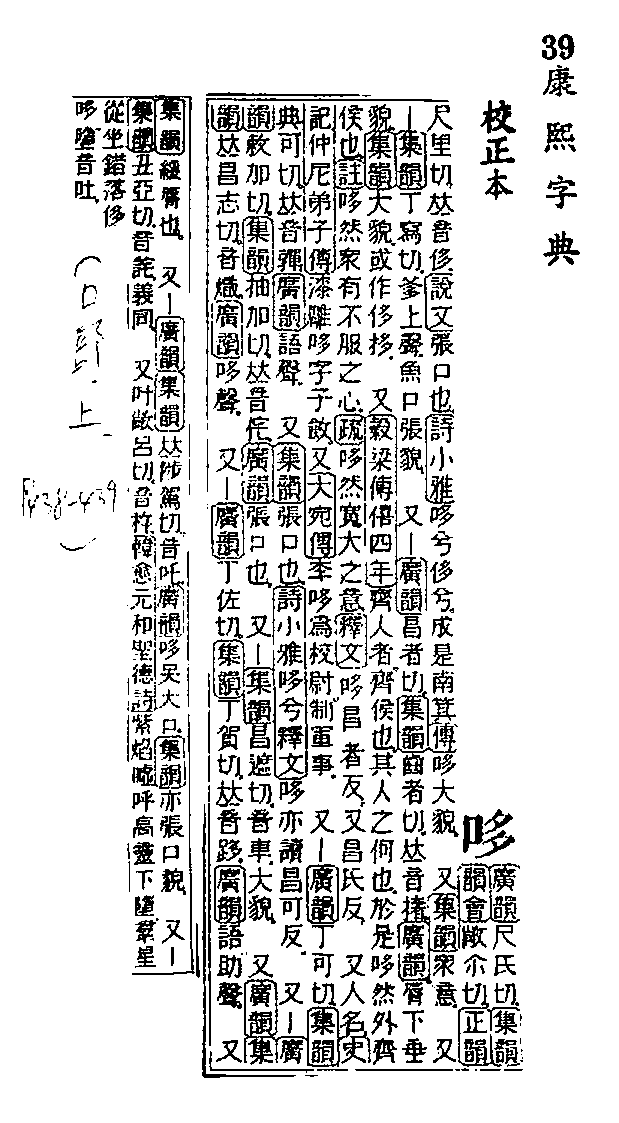 39康熙字典
校正本
哆
廣韻尺氏切集韻
韻會敞尒切正韻
尺里切𠀤音侈說文張口也詩小雅哆兮侈兮成是南箕傳哆大貌 又集韻衆意 又
一集韻丁寫切爹上聲魚口張貌 又一廣韻昌者切集韻齒者切𠀤音撦廣韻脣下垂
貌集韻大貌或作侈拸 又穀梁傳僖四年齊人者齊侯也其人之何也於是哆然外齊
侯也註哆然衆有不服之心疏哆然寬大之意釋文哆昌者反又昌氏反 又人名史
記仲尼弟子傳漆雕哆字子斂又大宛傳李哆爲校尉制軍事 又一廣韻丁可切集韻
典可切𠀤音嚲廣韻語聲 又集韻張口也詩小雅哆兮釋文哆亦讀昌可反 又一廣
韻敕加切集韻抽加切𠀤音侘廣韻張口也 又一集韻昌遮切音車大貌 又廣韻集
韻𠀤昌志切音熾廣韻哆聲 又一廣韻丁佐切集韻丁賀切𠀤音跢廣韻語助聲 又
集韻緩脣也 又一廣韻集韻𠀤陟駕切音吒廣韻哆吳大口集韻亦張口貌 又一
集韻丑亞切音詫義同 又叶敞呂切音杵韓愈元和聖德詩紫焰噓呼高靈下墮羣星
從坐錯落侈
哆墮音吐
(口部.上.
P438-439)